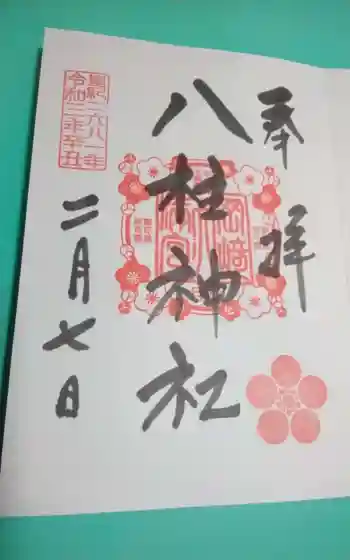 奉拝
八柱神社
皇紀二六八一年
令和三年辛丑
二月七日